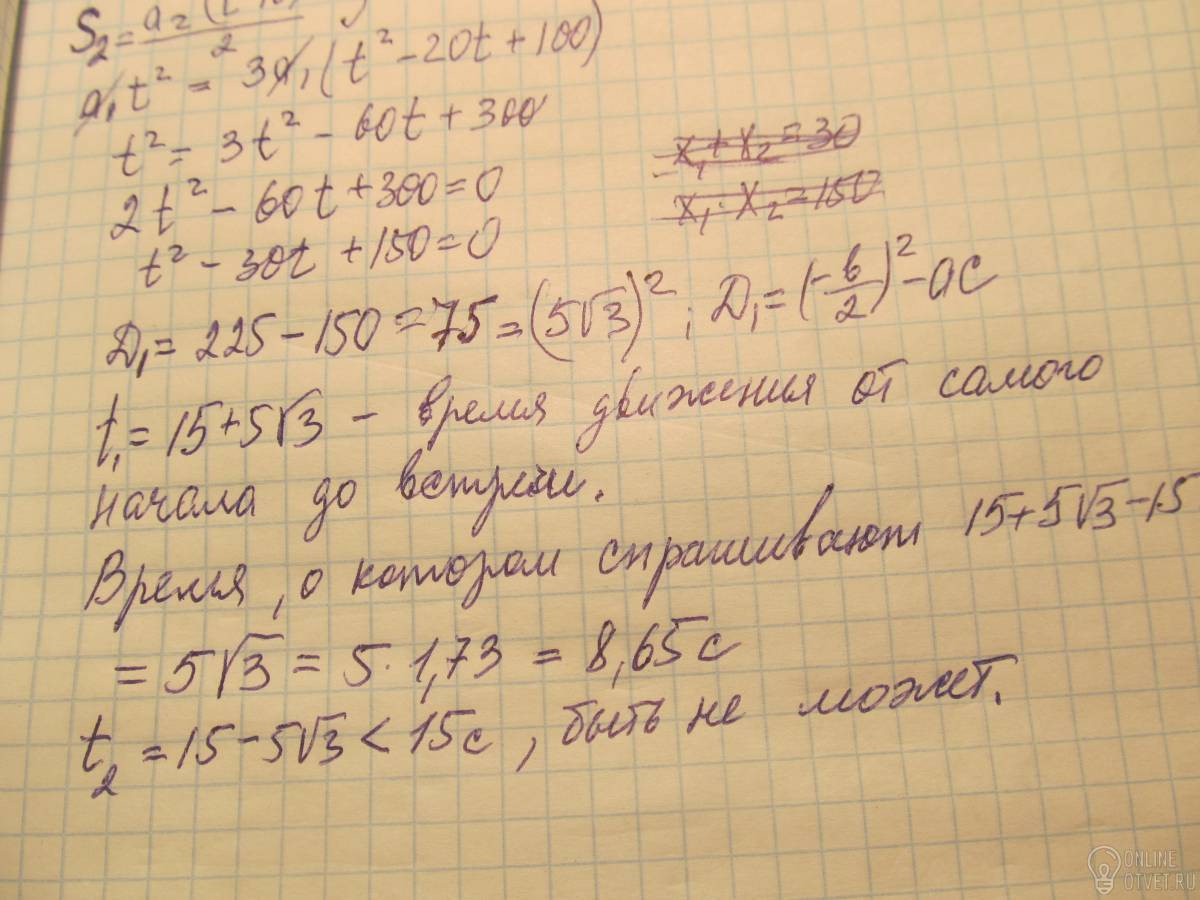 S₂ = a₂ (t
2
a₁t² = 3a₁(t² - 20t + 100)
t² = 3t² - 60t + 300
2t² - 60t + 300 = 0
t² - 30t + 150 = 0
x₁ + x₂ = 30
x₁ · x₂ = 150
D₁ = 225 - 150 = 75 = (5√3)² ; D₁ = (-b/2)² - ac
t₁ = 15 + 5√3 - время движения от самого
начала до встречи.
Время, о котором спрашивают 15 + 5√3 - 15
= 5√3 = 5 · 1,73 = 8,65 с
t₂ = 15 - 5√3 < 15 с, быть не может.
ONLINE
OTVET.RU